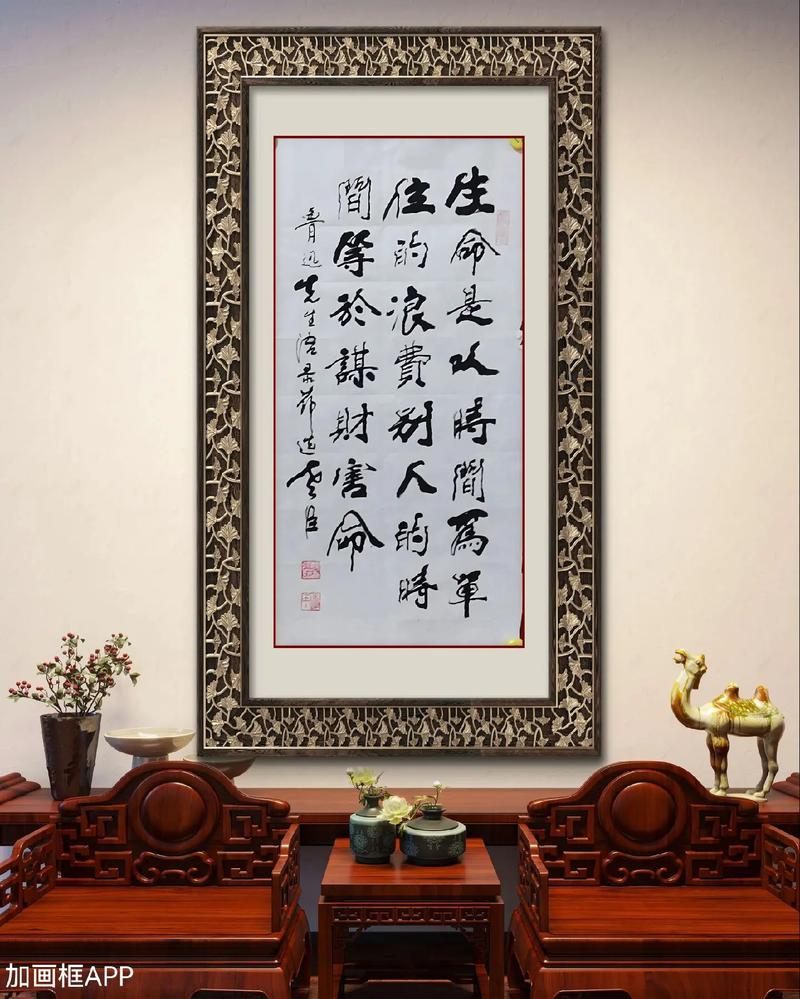 生命是以時間爲單
位的浪費别人的時
間等於謀財害命
魯迅先生语录节选
加画框APP